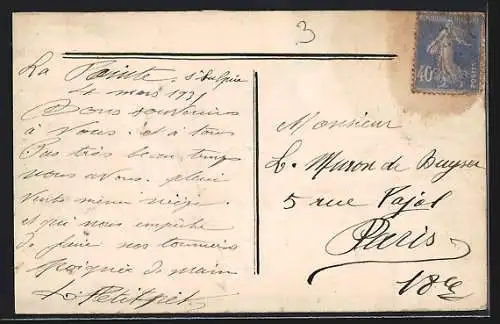 3
La Pointe. St Sulpice
Le mars 1931
Bons souvenirs
à Vous. et à tous
Pas très beau temps
nous avons. pluie
vente même neige.
et qui nous empêche
de faire nos tournées
Poignée de main
Petitpierre
40
Monsieur
L. Muron de Buyser
5 rue Pajol
Paris
18e